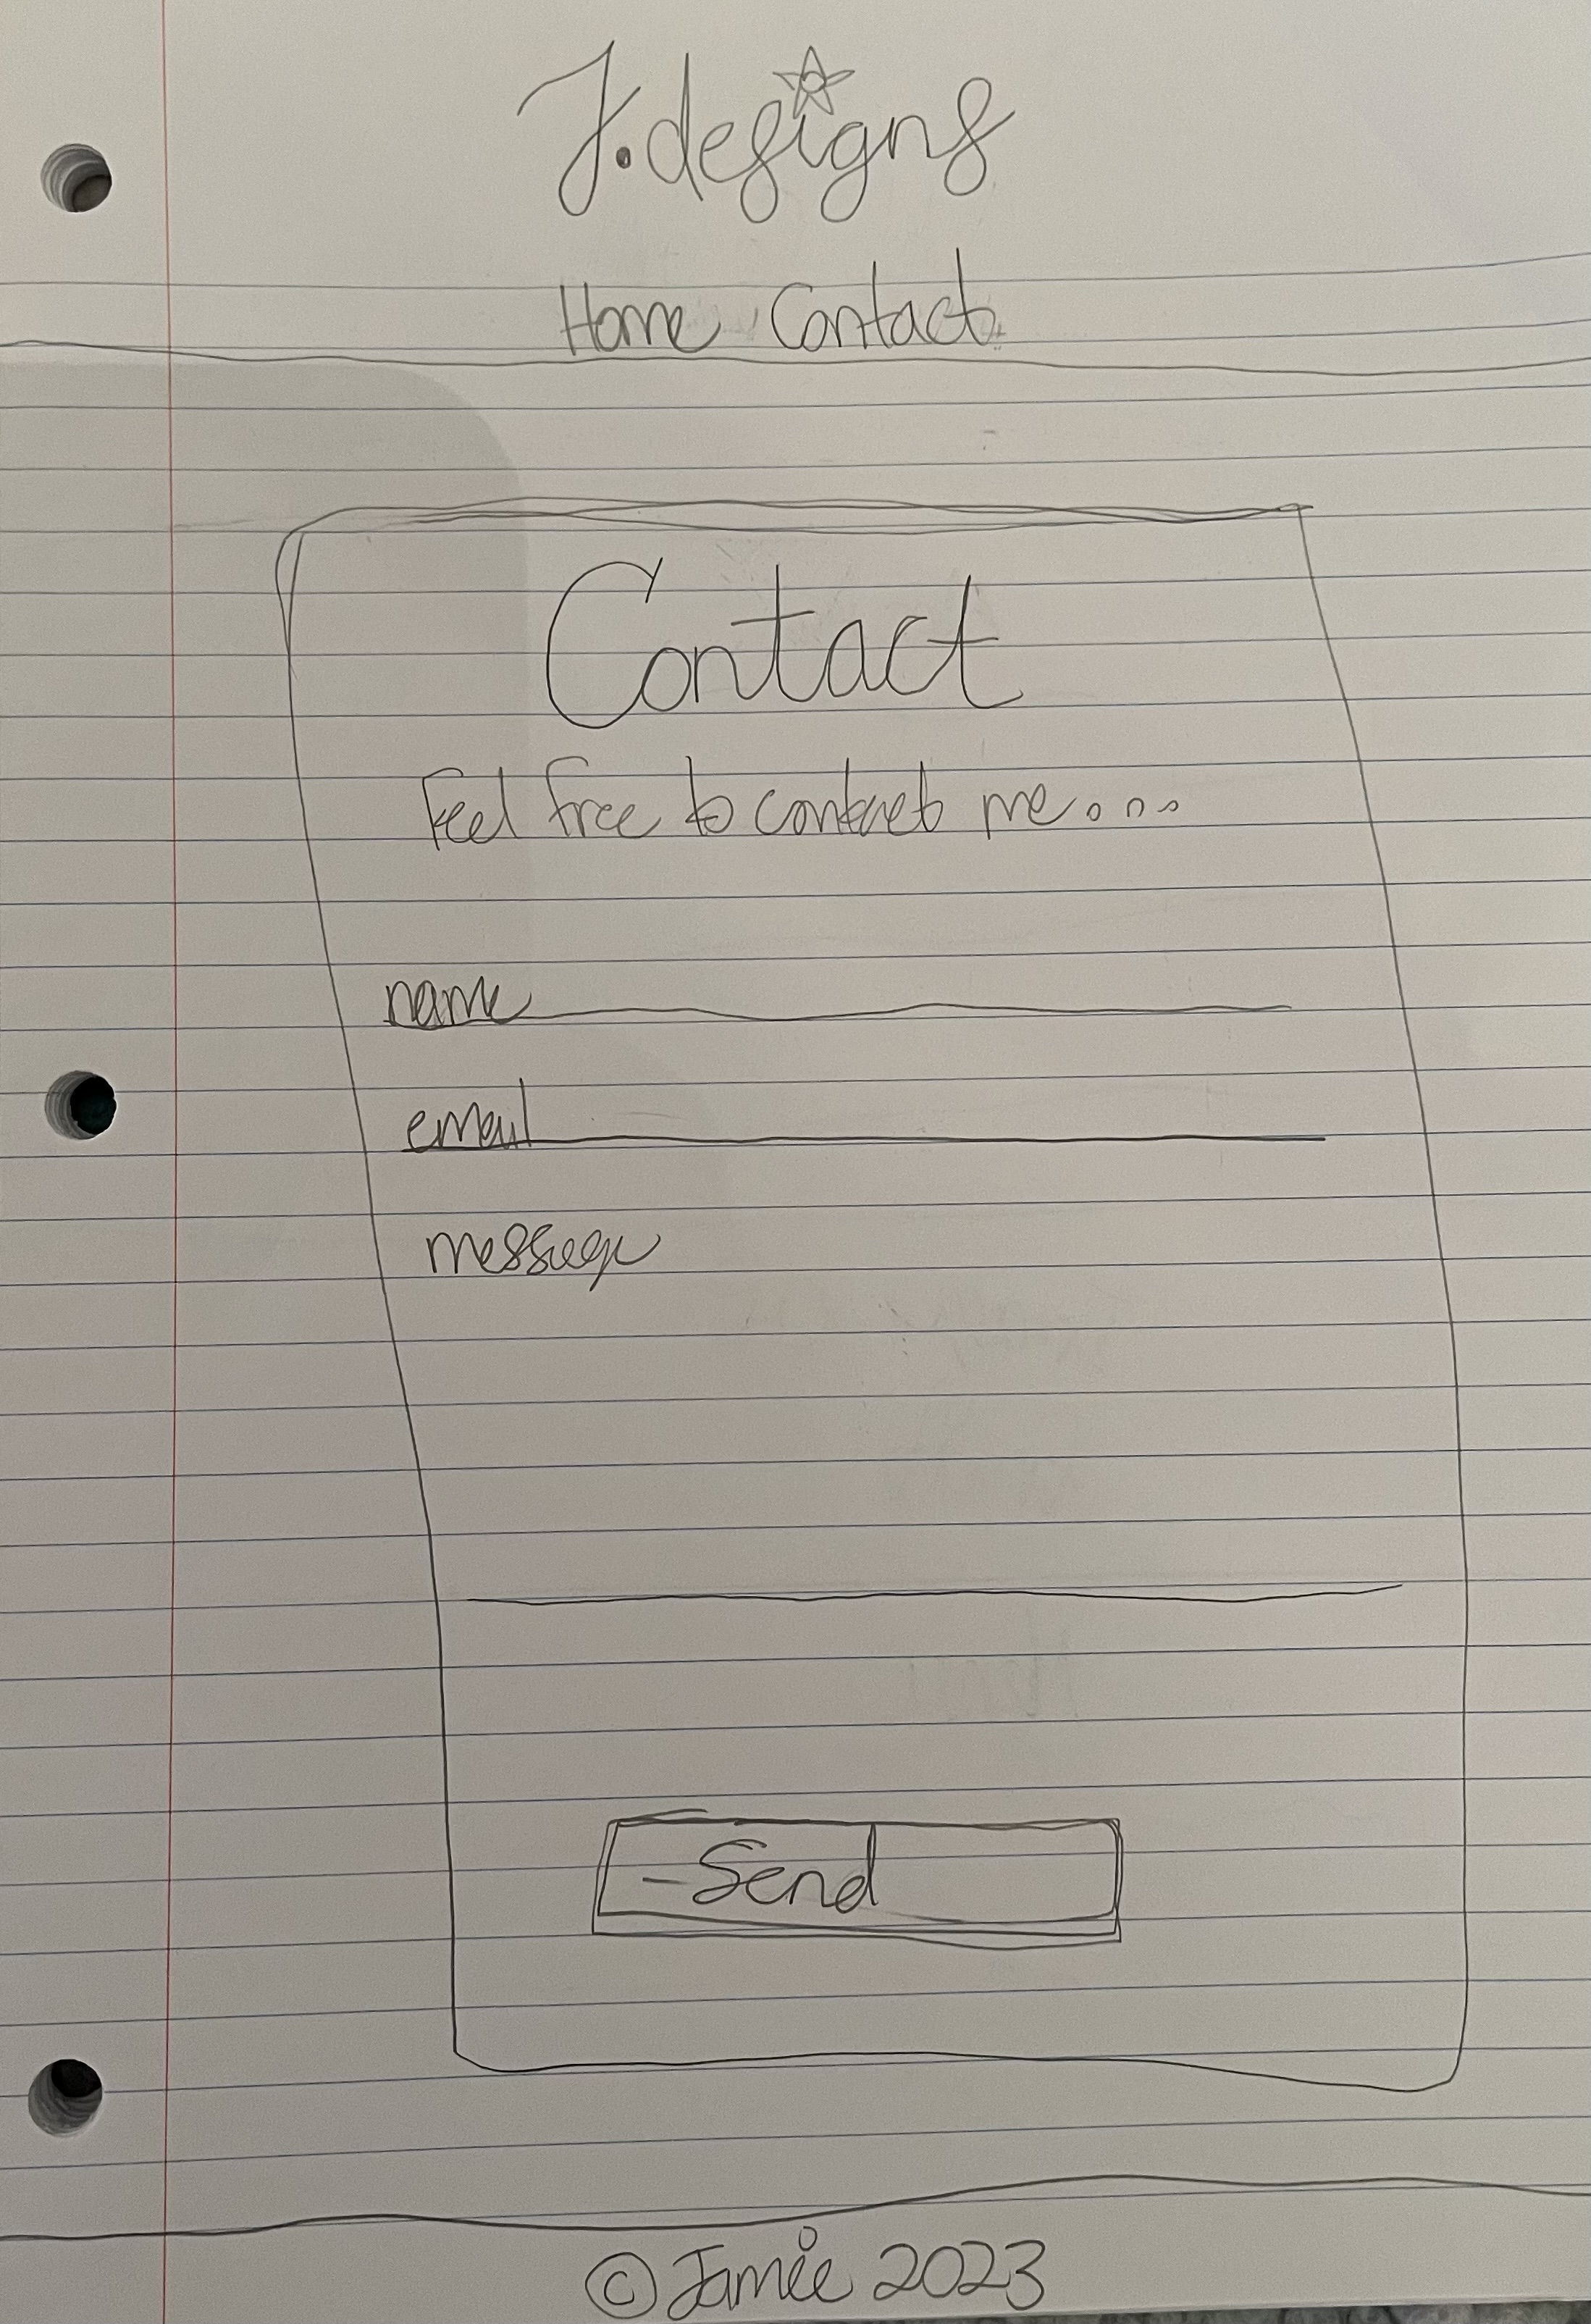 J.designs
Home Contact
Contact
Feel free to contact me...
name
email
message
-Send
©Jamie 2023